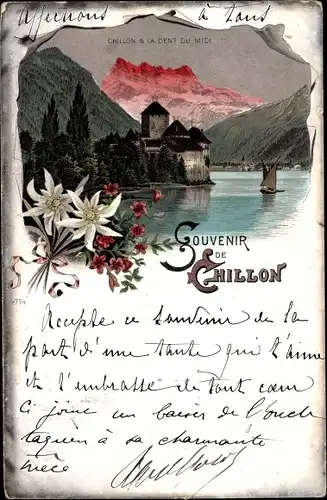 Affections à tous
CHILLON & LA DENT DU MIDI
SOUVENIR
DE
CHILLON
4774
Accepte ce souvenir de la
part d'une tante qui t'aime
et t'embrasse de tout cœur
Ci joint un baiser de l'oncle
à sa charmante
nièce